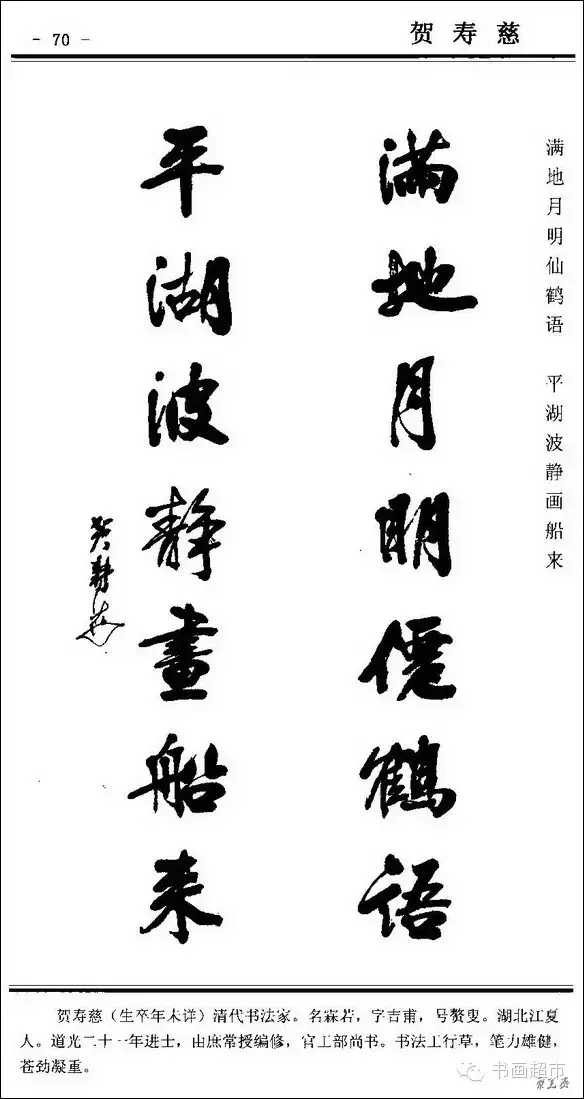 - 70 -
贺寿慈
满地月明仙鹤语 平湖波静画船来
滿地月明僊鶴語
平湖波静畫船来
贺寿慈
贺寿慈（生卒年未详）清代书法家。名霖若，字吉甫，号赘叟。湖北江夏
人。道光二十一年进士，由庶常授编修，官工部尚书。书法工行草，笔力雄健，
苍劲凝重。
书画超市